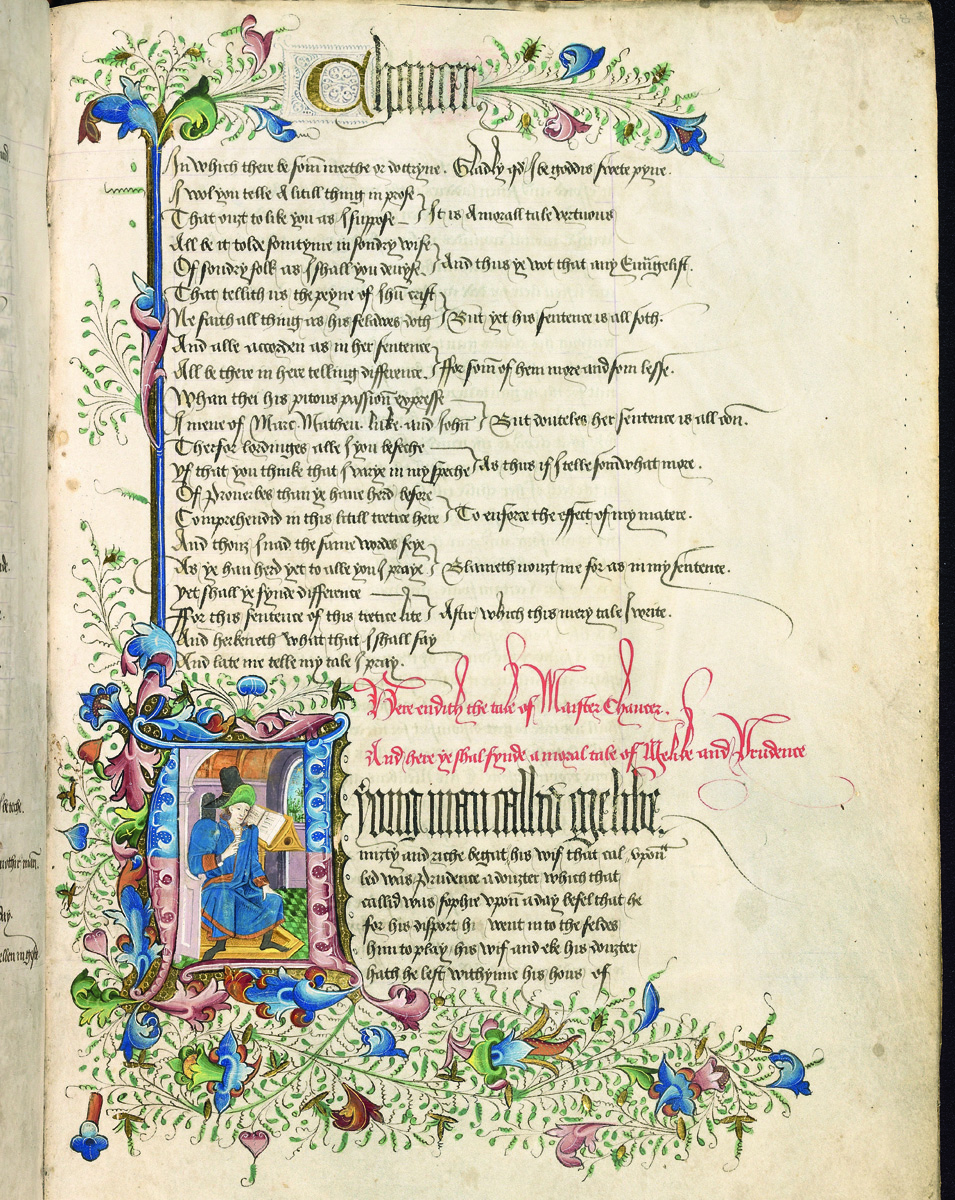 Chaucer
In which there be som merthe or doctryne. Gladly qd I be goddis swete pyne.
I wol you telle A litill thing in prose
That ouzt to like you as I suppose It is A morall tale vertuous
All be it tolde somtyme in sondry wise
Of sondry folk as I shall you devyse And thus ye wot that any Euangelist.
That tellith us the peyne of Ihu crist
Ne saith all thing as his felawes doth But yet his sentence is all soth.
And alle accorden as in her sentence
All be there in here telling difference. ffor som of hem more and som lesse.
Whan thei his pitous passion expresse
I mene of Marc Matheu luke and Iohn But douteles her sentence is all oon.
Therfor lordinges alle I you beseche
yf that you think that I varye in my speche As thus if I telle somwhat more.
Of Prouerbes than ye haue herd before
Comprehendid in this litill tretice here To enforce the effect of my matere.
And thouz I nad the same wordes seye
As ye han herd yet to alle you I praye Blameth nouzt me for as in my sentence.
yet shall ye fynde difference
ffor this sentence of this tretice lite Aftir which this mery tale I write.
And herkeneth what that I shall say
And late me telle my tale I pray.
Here endith the tale of Maister Chaucer.
And here ye shul fynde a moral tale of Melibe and Prudence
A yong man callid Melibe
mizty and riche begat his wif that cal upon
led was Prudence a douzter which that
callid was sophie vpon a day befel that he
for his disport he went in to the feldes
him to play his wif and eke his douzter
hath he left withynne his hous of